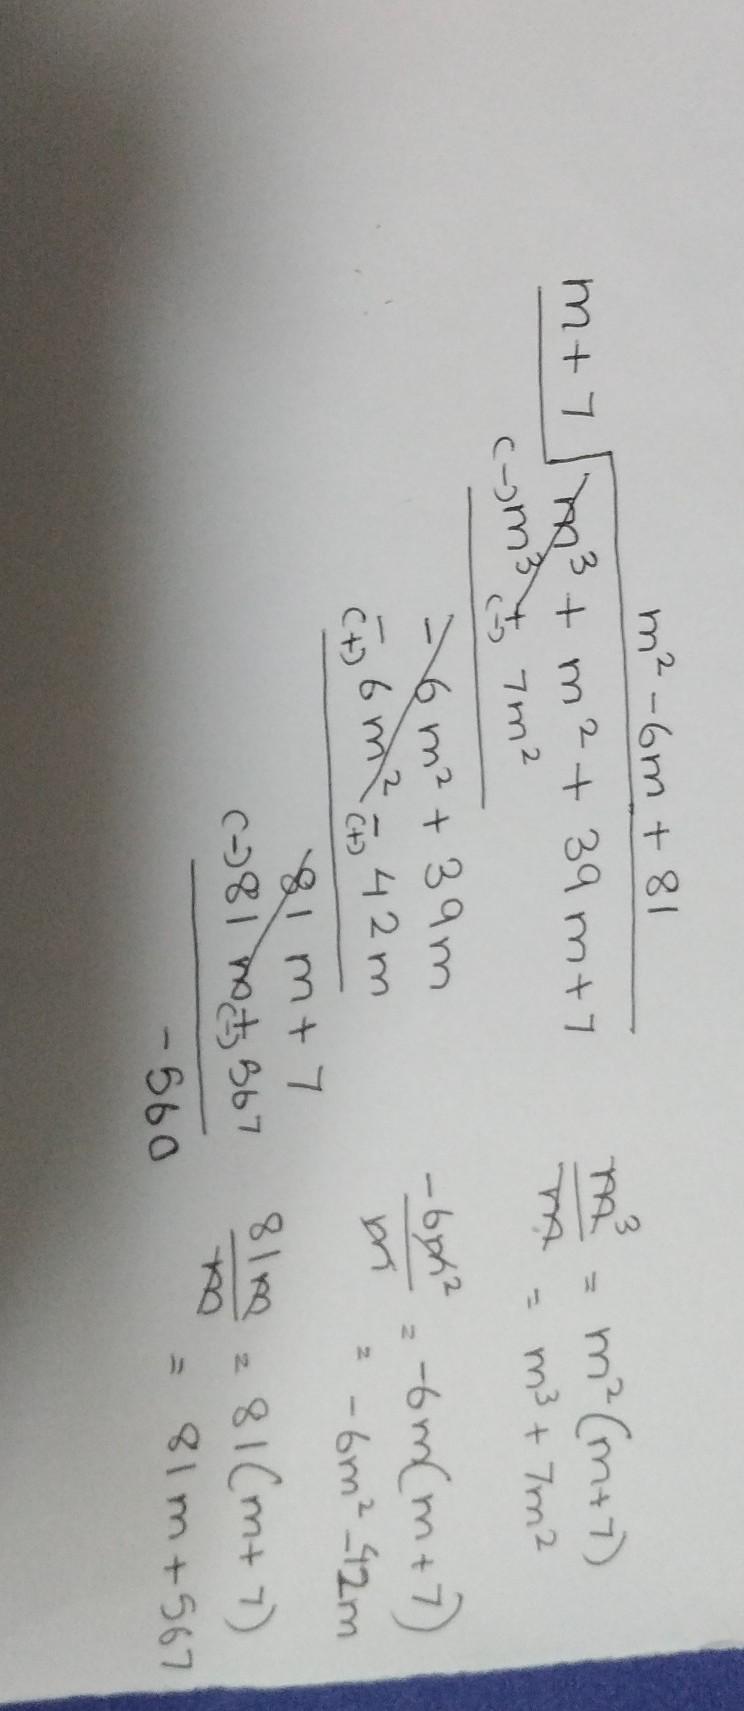 m² - 6m + 81
m + 7 √ m³ + m² + 39m + 7
(-) m³ + (-) 7m²
- 6m² + 39m
- (+) 6m² - (+) 42m
81m + 7
(-) 81m + (-) 567
- 560
m³/m = m²(m+7)
= m³ + 7m²
-6m²/m = -6m(m+7)
= -6m² - 42m
81m/m = 81(m+7)
= 81m + 567